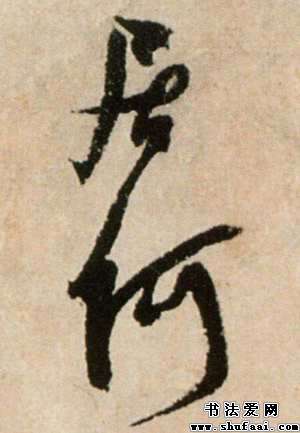 居何
书法爱网
www.shufaai.com